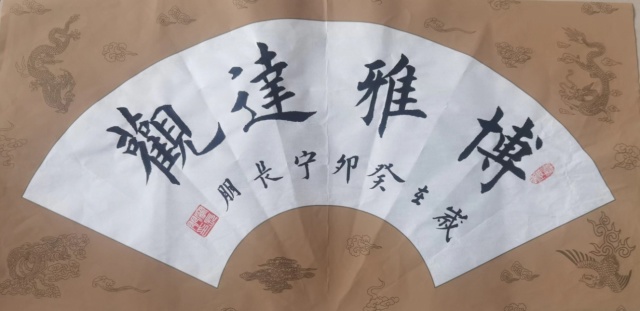 博雅達觀
歲在癸卯宁長朋